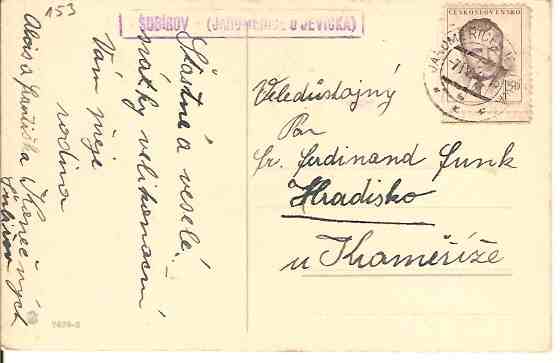 153
ŠUBÍŘOV (JAROMĚŘICE U JEVÍČKA)
ČESKOSLOVENSKO
1,50
JAROMĚŘICE
Šťastné a veselé
svátky velikonoční
Vám přeje
rodina
Alois a Františka
Šubířov
Veledůstojný
Pan
fr. Ferdinand Funk
Hradisko
u Kroměříže